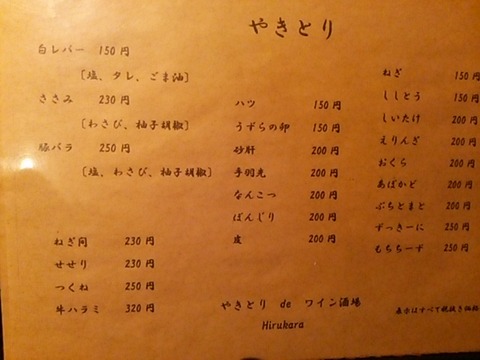 やきとり
白レバー 150円
[塩、タレ、ごま油]
ささみ 230円
[わさび、柚子胡椒]
豚バラ 250円
[塩、わさび、柚子胡椒]
ねぎ間 230円
せせり 230円
つくね 250円
牛ハラミ 320円
ハツ 150円
うずらの卵 150円
砂肝 200円
手羽先 200円
なんこつ 200円
ぼんじり 200円
皮 200円
ねぎ 150円
ししとう 150円
しいたけ 200円
えりんぎ 200円
おくら 200円
あぼかど 200円
ぷちとまと 200円
ずっきーに 250円
もちちーず 250円
やきとり de ワイン酒場
Hirukara
表示はすべて税抜き価格